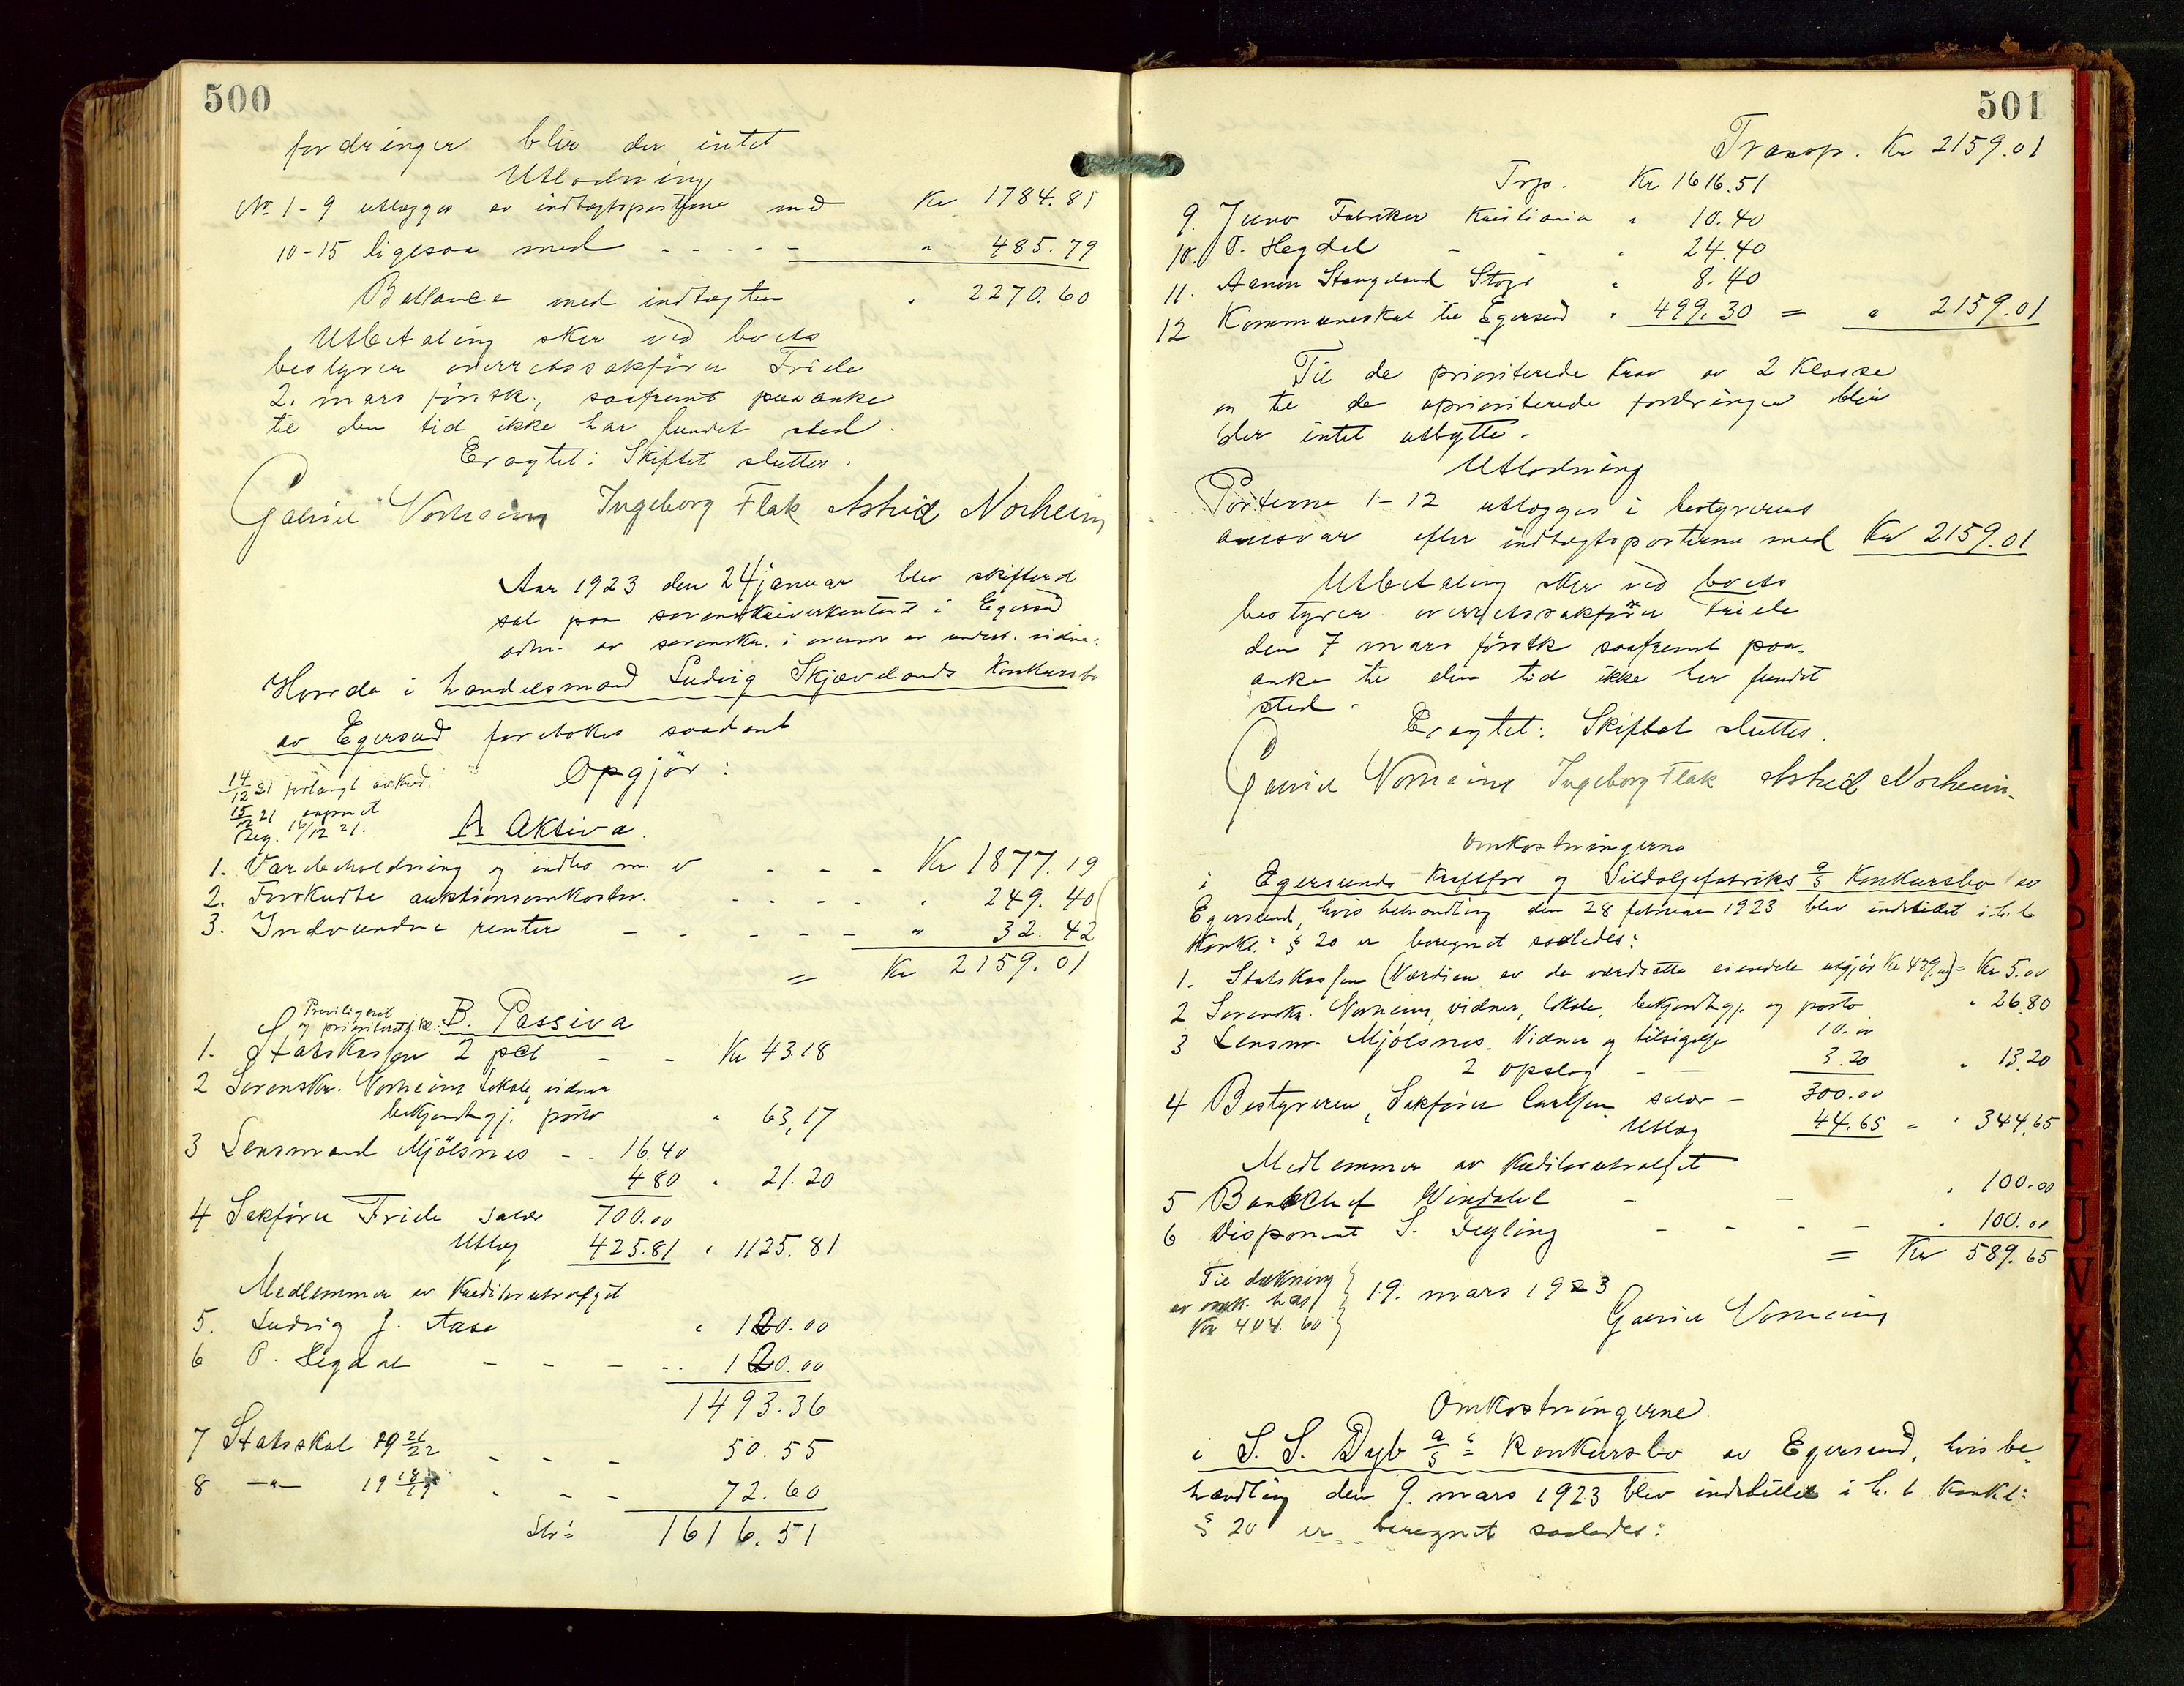 500
fordringer blir der intet
Utlodning
No. 1-9 utlægges av indtægtspostene med Kr 1784.81
10-15 ligesaa med - - - - - " 485.79
Ballance med indtægten " 2270.60
Utbetaling sker ved boets
bestyrer overretssakfører Friele
2. mars førstk., saafremt paaanke
til den tid ikke har fundet sted.
Eragtet: Skiftet sluttes.
Gabriel Norheim Ingeborg Flak Astrid Norheim
Aar 1923 den 24 januar blev skifteret
sat paa sorenskriverkontoret i Egersund
adm. av sorenskr. i overvær av undert. vidne.
Hvorda i handelsmand Ludvig Skjævelands Konkursbo
av Egersund foretokes saadant
Opgjør:
14/12 21 forlangt avkund.
15/12 21
Reg. 16/12 21.
A Aktiva.
1. Varebeholdning og indbo m. v - - - Kr 1877.19
2. Forskudte auktionsomkostn. - - - - " 249.40
3. Indvundne renter - - - - - " 32.42
= Kr 2159.01
Priviligeret
og prioritert 1. kl.: B. Passiva
1. Statskassen 2 pct - - Kr 43.18
2 Sorenskr. Norheim lokale, vidner
bekjendtgj. porto " 63,17
3 Lensmand Mjølsnes - - 16.40
4 80 " 21.20
4 Sakfører Friele salær 700.00
Utlæg 425.81 " 1125.81
Medlemmer av Kreditorutvalget
5. Ludvig J. Aase " 120.00
6 O. Hegdal - - - - 120.00
1493.36
7 Statsskat 19 21/22 - - - 50.55
8 -"- 19 18/19 - - - 72.60
1616.51
501
Transp. Kr 2159.01
Trp. Kr 1616.51
9. Juno Fabriker Kristiania " 10.40
10. O. Hegdal - - " 24.40
11. Stangeland " 8.40
12 Kommuneskat til Egersund " 499.30 = " 2159.01
Til de prioriterede krav av 2 Klasse
og til de uprioriterede fordringer blir
der intet utbytte.
Utlodning
Posterne 1-12 utlægges i bestyrerens
ansvar efter indtægtsposterne med Kr 2159.01
Utbetaling sker ved boets
bestyrer overretssakfører Friele
den 7 mars førstk saafremt paa-
anke til den tid ikke har fundet
sted.
Eragtet: Skiftet sluttes.
Gabriel Norheim Ingeborg Flak Astrid Norheim.
Omkostningerne
i Egersunds Kraftfor og Sildoljefabriks a/s Konkursbo av
Egersund, hvis behandling den 28 februar 1923 blev indstillet i h. t
Konkl: § 20 er beregnet saaledes:
1. Statskassen (Værdien av de værdsatte eiendele utgjør Kr 479.00) = Kr 5.00
2 Sorenskr. Norheim, vidner, lokale, bekjendtgj. og porto " 26.80
3 Lensm. Mjølsnes. Vidner og tilsigelse 10.00
2 opslag - - 3.20 " 13.20
4 Bestyreren, Sakfører Carlsen salær - 300.00
Utlæg 44.65 = " 344.65
Medlemmer av Kreditorutvalget
5 Bankchef Windahl - - " 100.00
6 Disponent S. Feyling - - - - " 100.00
= Kr 589.65
Til dækning
av omk. has
Kr 404.60
19. mars 1923
Gabriel Norheim
Omkostningerne
i S. S. Dyb a/s's Konkursbo av Egersund, hvis be-
handling den 9. mars 1923 blev indstillet i h. t Konkl:
§ 20 er beregnet saaledes: